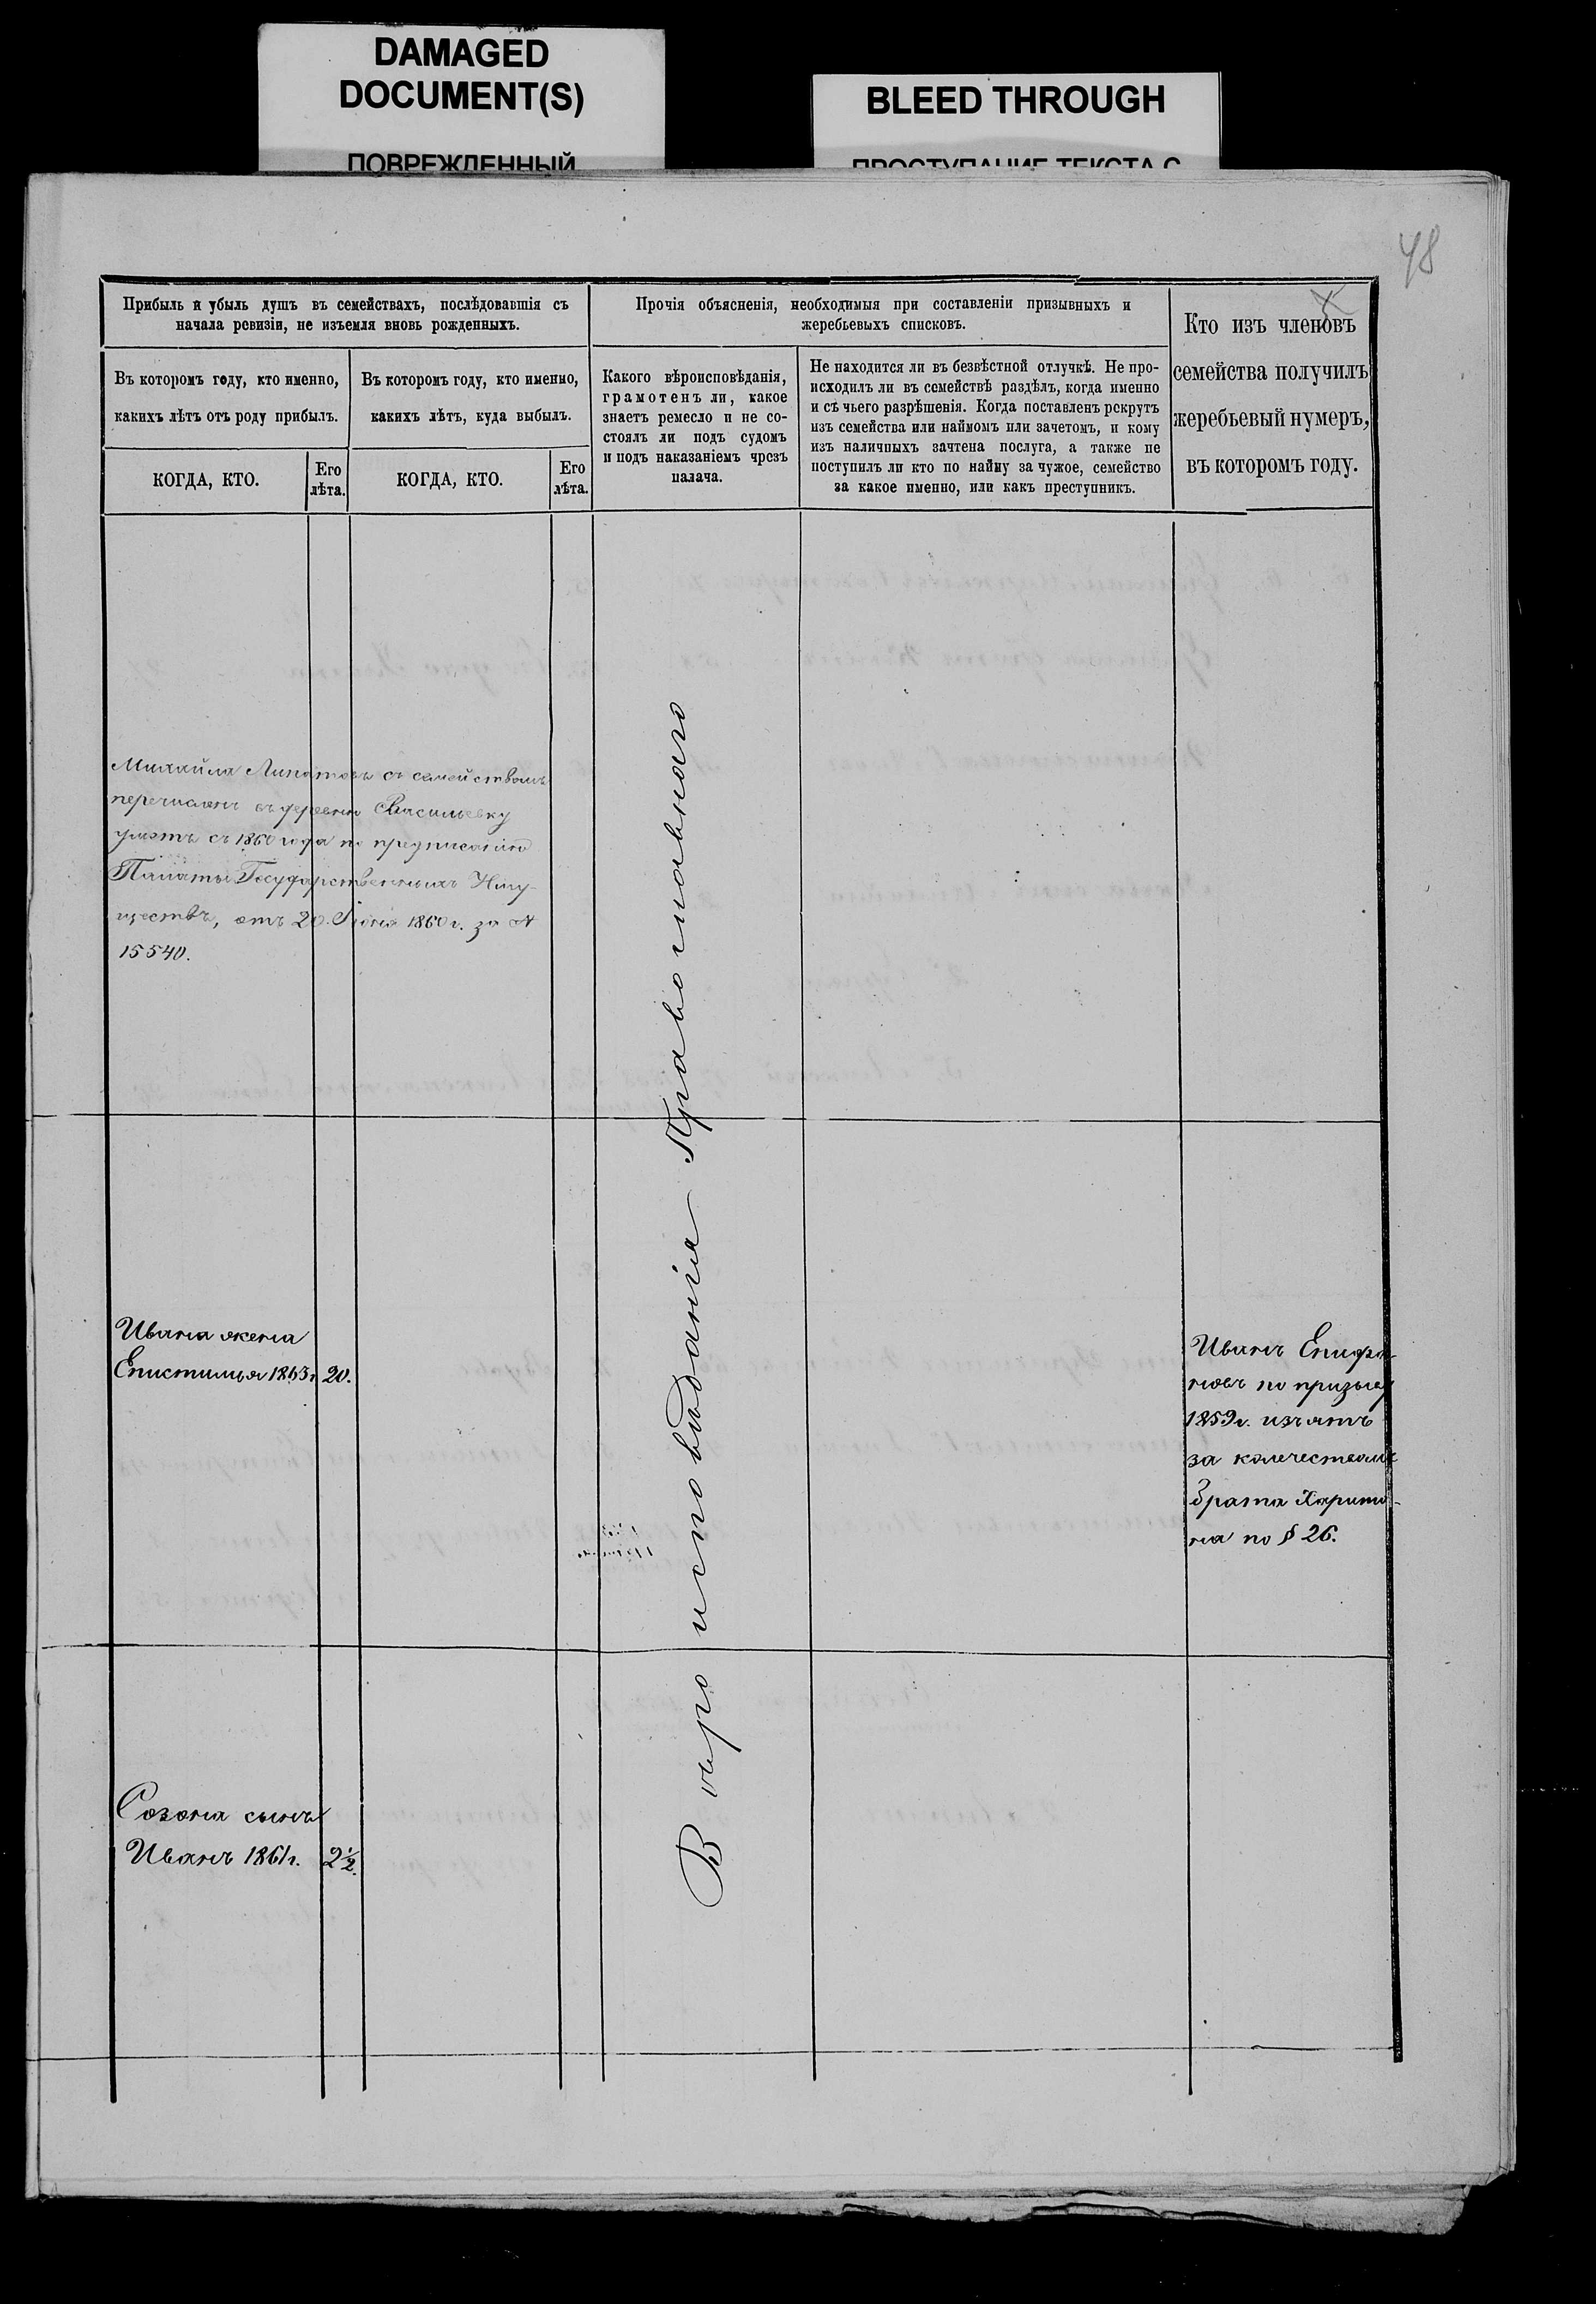 DAMAGED
DOCUMENT(S)
ПОВРЕЖДЕННЫЙ
BLEED THROUGH
ПРОСТУПАНИЕ ТЕКСТА С
48
Прибыль и убыль душъ въ семействахъ, послѣдовавшія съ
начала ревизіи, не изъемля вновь рожденныхъ.
Въ которомъ году, кто именно,
какихъ лѣтъ отъ роду прибылъ.
Въ которомъ году, кто именно,
какихъ лѣтъ, куда выбылъ.
КОГДА, КТО.
Его
лѣта.
КОГДА, КТО.
Его
лѣта.
Прочія объясненія, необходимыя при составленіи призывныхъ и
жеребьевыхъ списковъ.
Какого вѣроисповѣданія,
грамотенъ ли, какое
знаетъ ремесло и не со-
стоялъ ли подъ судомъ
и подъ наказаніемъ чрезъ
палача.
Не находится ли въ безвѣстной отлучкѣ. Не про-
исходилъ ли въ семействѣ раздѣлъ, когда именно
и съ чьего разрѣшенія. Когда поставленъ рекрутъ
изъ семейства или наймомъ или зачетомъ, и кому
изъ наличныхъ зачтена послуга, а также не
поступилъ ли кто по найму за чужое, семейство
за какое именно, или какъ преступникъ.
Кто изъ членовъ
семейства получилъ
жеребьевый нумеръ,
въ которомъ году.
Михайла Липатовъ съ семействомъ
перечисленъ въ деревню Васильевку
съ 1860 года по предписанію
Палаты Государственныхъ Иму-
ществъ, отъ 20 Іюня 1860 г. за №
15540.
Вѣро исповѣданія Православнаго
Ивана жена
Епистимья 1863 г. 20.
Иванъ Епифа-
новъ по призыву
1859 г. изъятъ
за калечествомъ
брата Харито-
на по § 26.
Созона сынъ
Иванъ 1861 г. 2½.